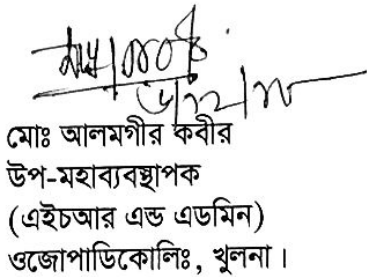 মোঃ আলমগীর কবীর
উপ-মহাব্যবস্থাপক
(এইচআর এন্ড এডমিন)
ওজোপাডিকোলিঃ, খুলনা।